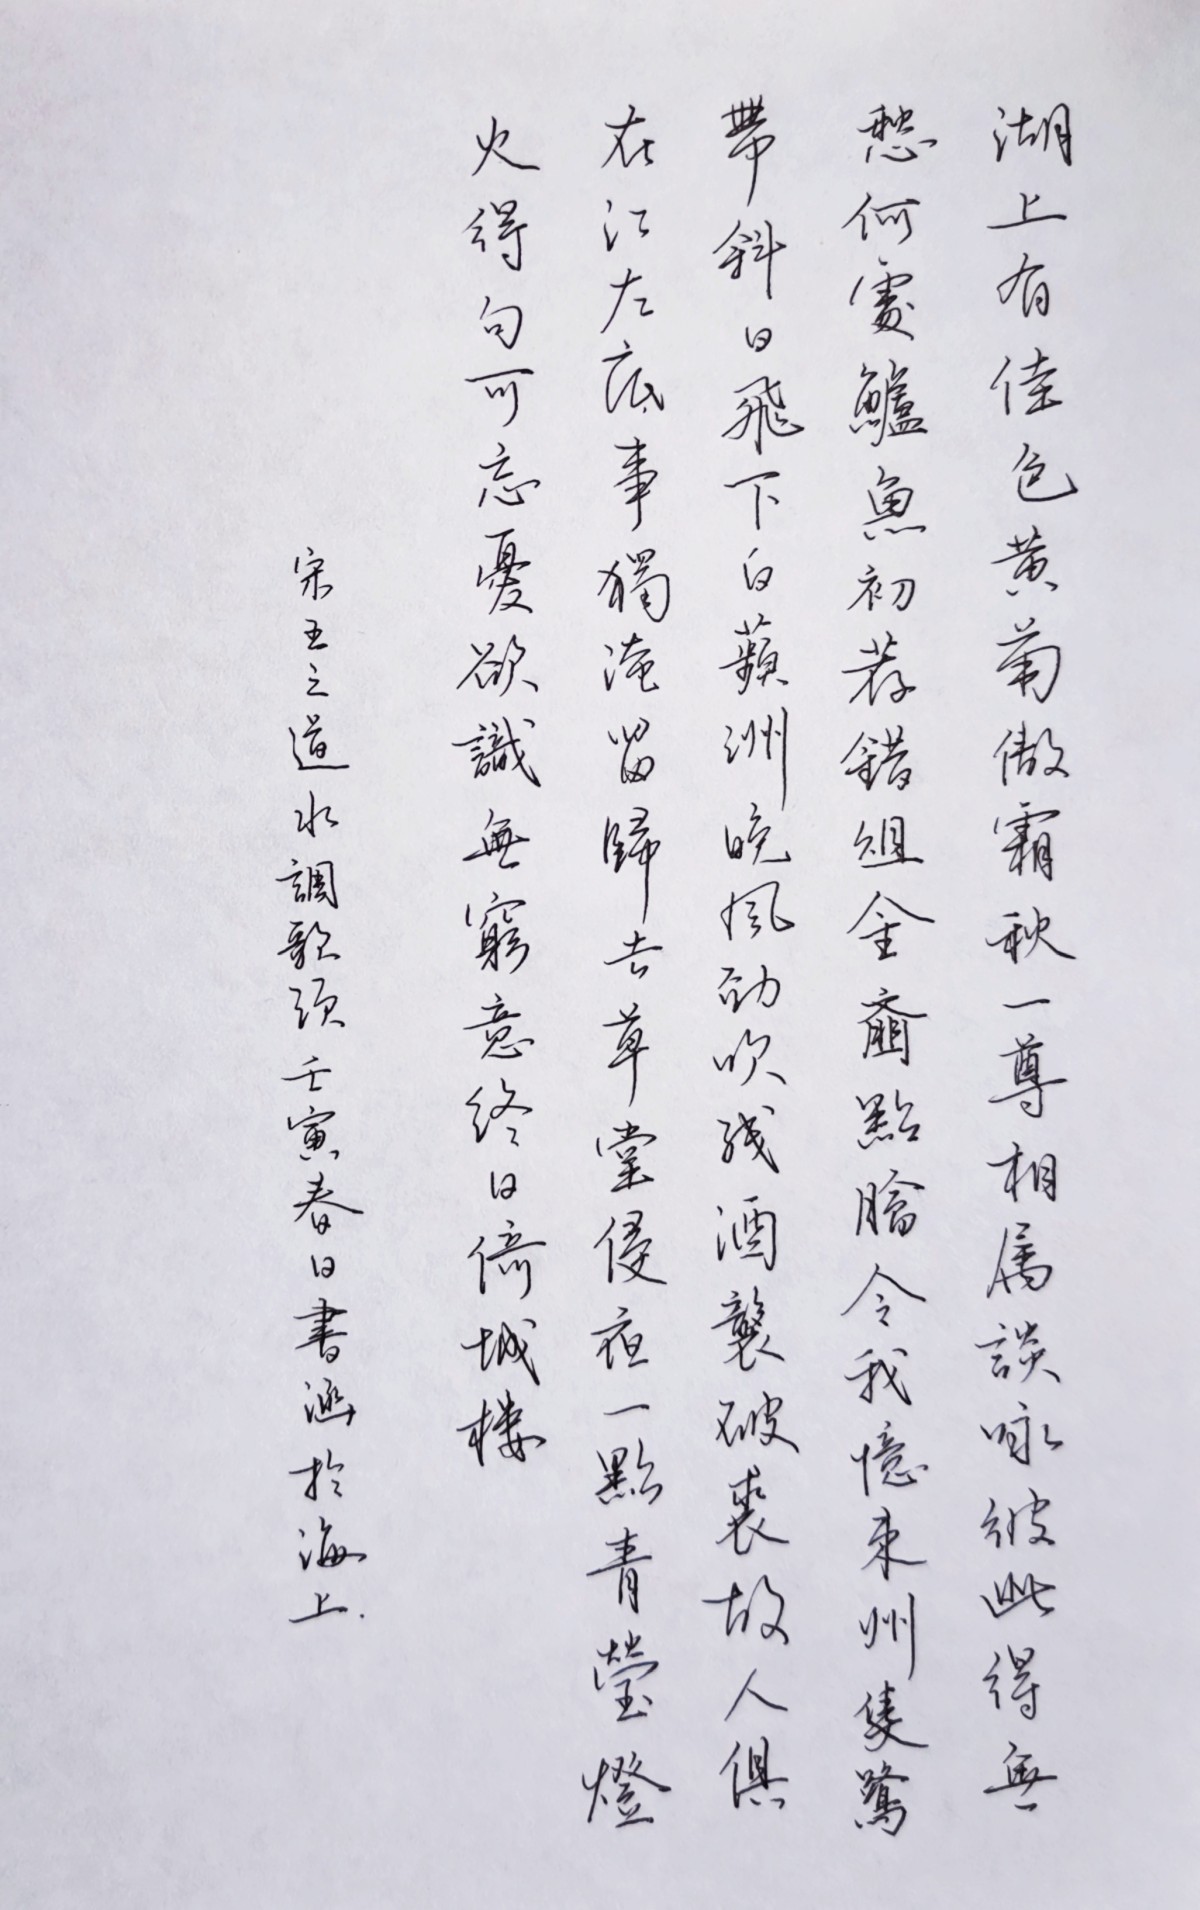 湖上有佳色黄菊傲霜秋一尊相属談咏彼此得無
愁何處鱸魚初荐錯俎金齏點膾令我憶東州隻鷺
帶斜日飛下白蘋洲晚風劲吹残酒襲破裘故人俱
在江左底事獨淹留歸去草堂侵夜一點青瑩燈
火得句可忘憂欲識無窮意終日倚城樓
宋王之道水調歌頭壬寅春日書涵於海上